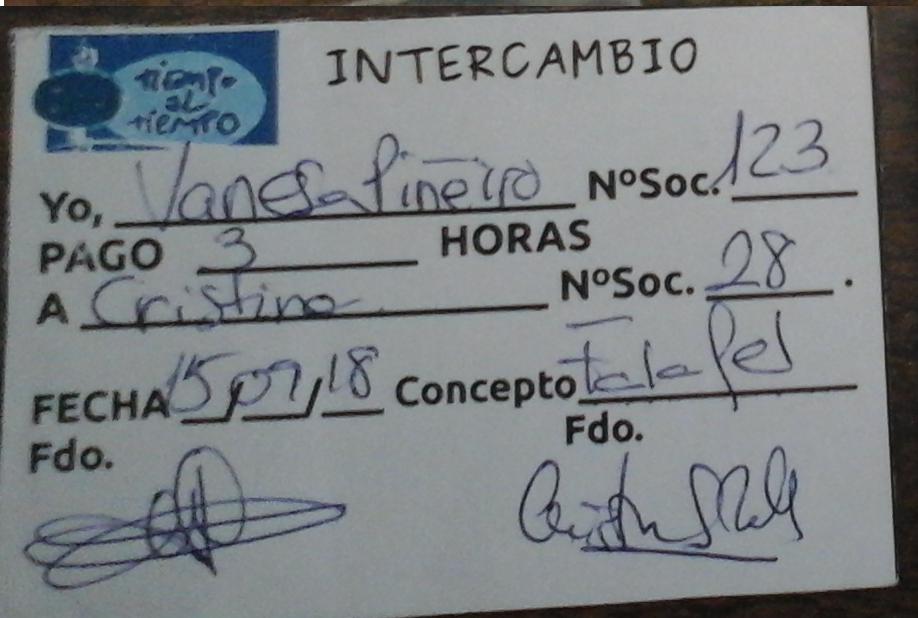 tiempo
al
tiempo
INTERCAMBIO
Yo, Vanesa Piñeiro NºSoc. 123
PAGO 3 HORAS
A Cristina NºSoc. 28.
FECHA 15/09/18 Concepto
Fdo. Fdo.